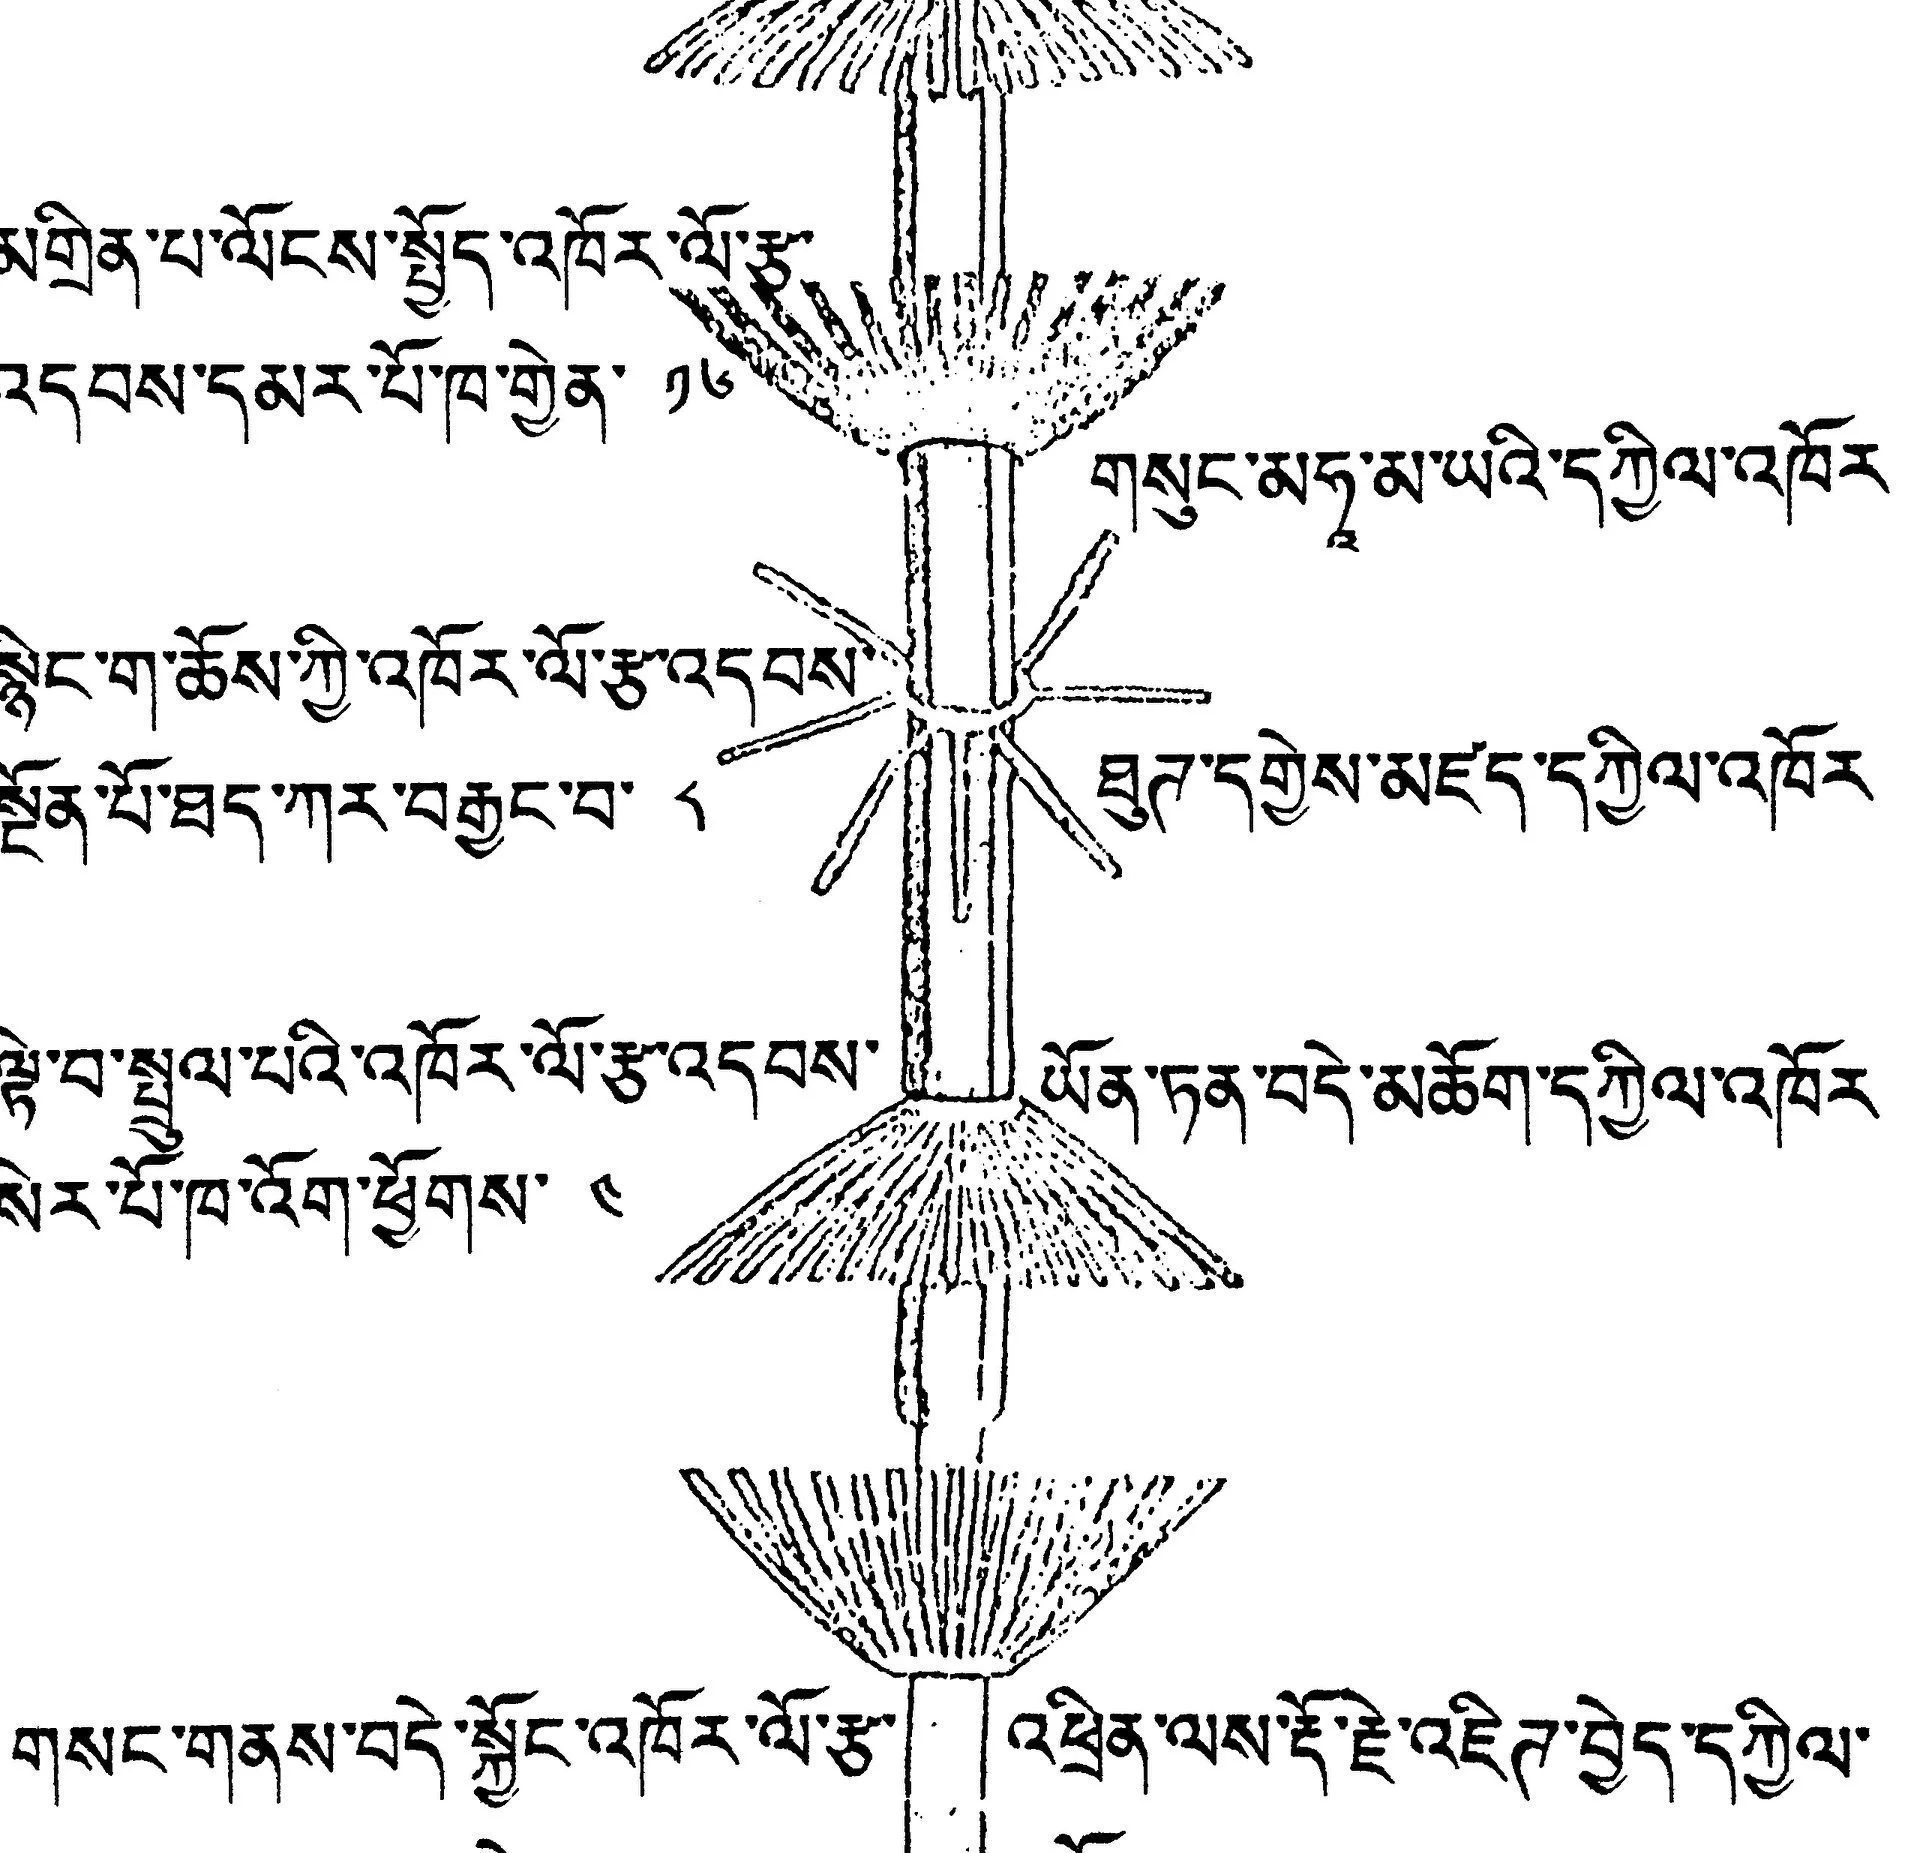 མགྲིན་པ་ལོངས་སྤྱོད་འཁོར་ལོ་རྩ་
འདབས་དམར་པོ་ཁ་གྱེན་ ༡༦
གསུང་མཧཱ་མ་ཡའི་དཀྱིལ་འཁོར
སྙིང་ག་ཆོས་ཀྱི་འཁོར་ལོ་རྩ་འདབས་
སྔོན་པོ་ཐད་ཀར་བརྒྱང་བ་ ༨
ཐུཊ་དགྱེས་མཛད་དཀྱིལ་འཁོར
ལྟེ་བ་སྤྲུལ་པའི་འཁོར་ལོ་རྩ་འདབས་
སེར་པོ་ཁ་འོག་ཕྱོགས་ ༦༤
ཡོན་ཏན་བདེ་མཆོག་དཀྱིལ་འཁོར
གསང་གནས་བདེ་སྐྱོང་འཁོར་ལོ་རྩ་
འཕྲིན་ལས་རྡོ་རྗེ་འཇིཊ་བྱེད་དཀྱིལ་